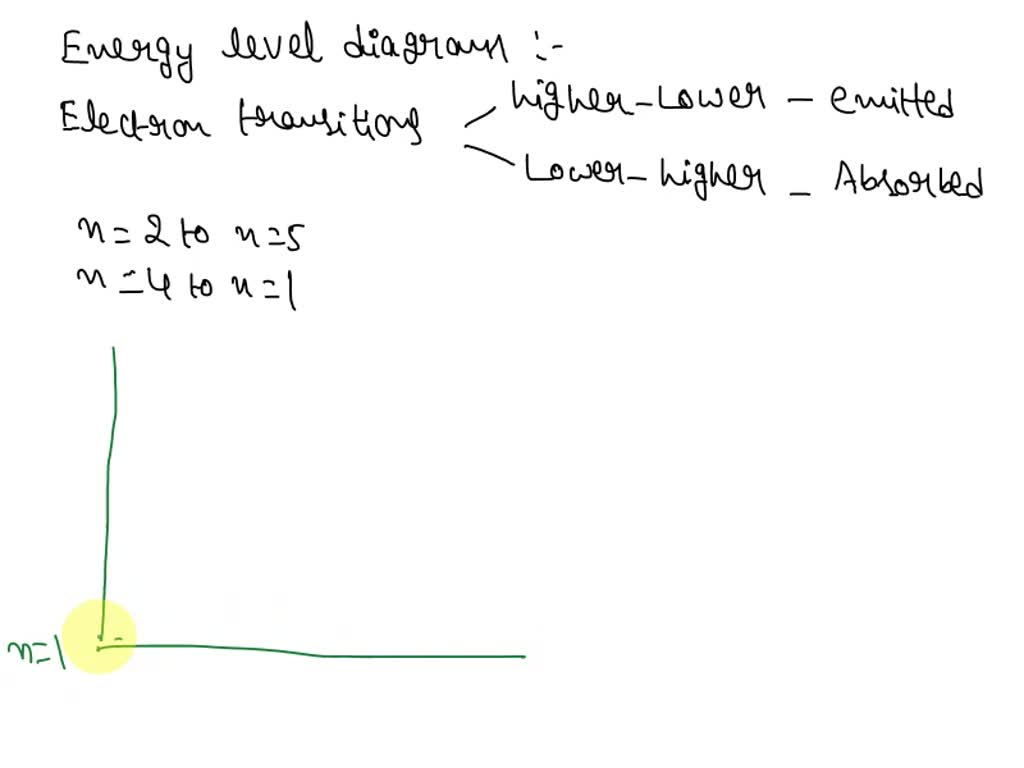 Energy level diagram :-
Electron transitions
higher-Lower - emitted
Lower-higher - Absorbed
n=2 to n=5
n=4 to n=1
n=1